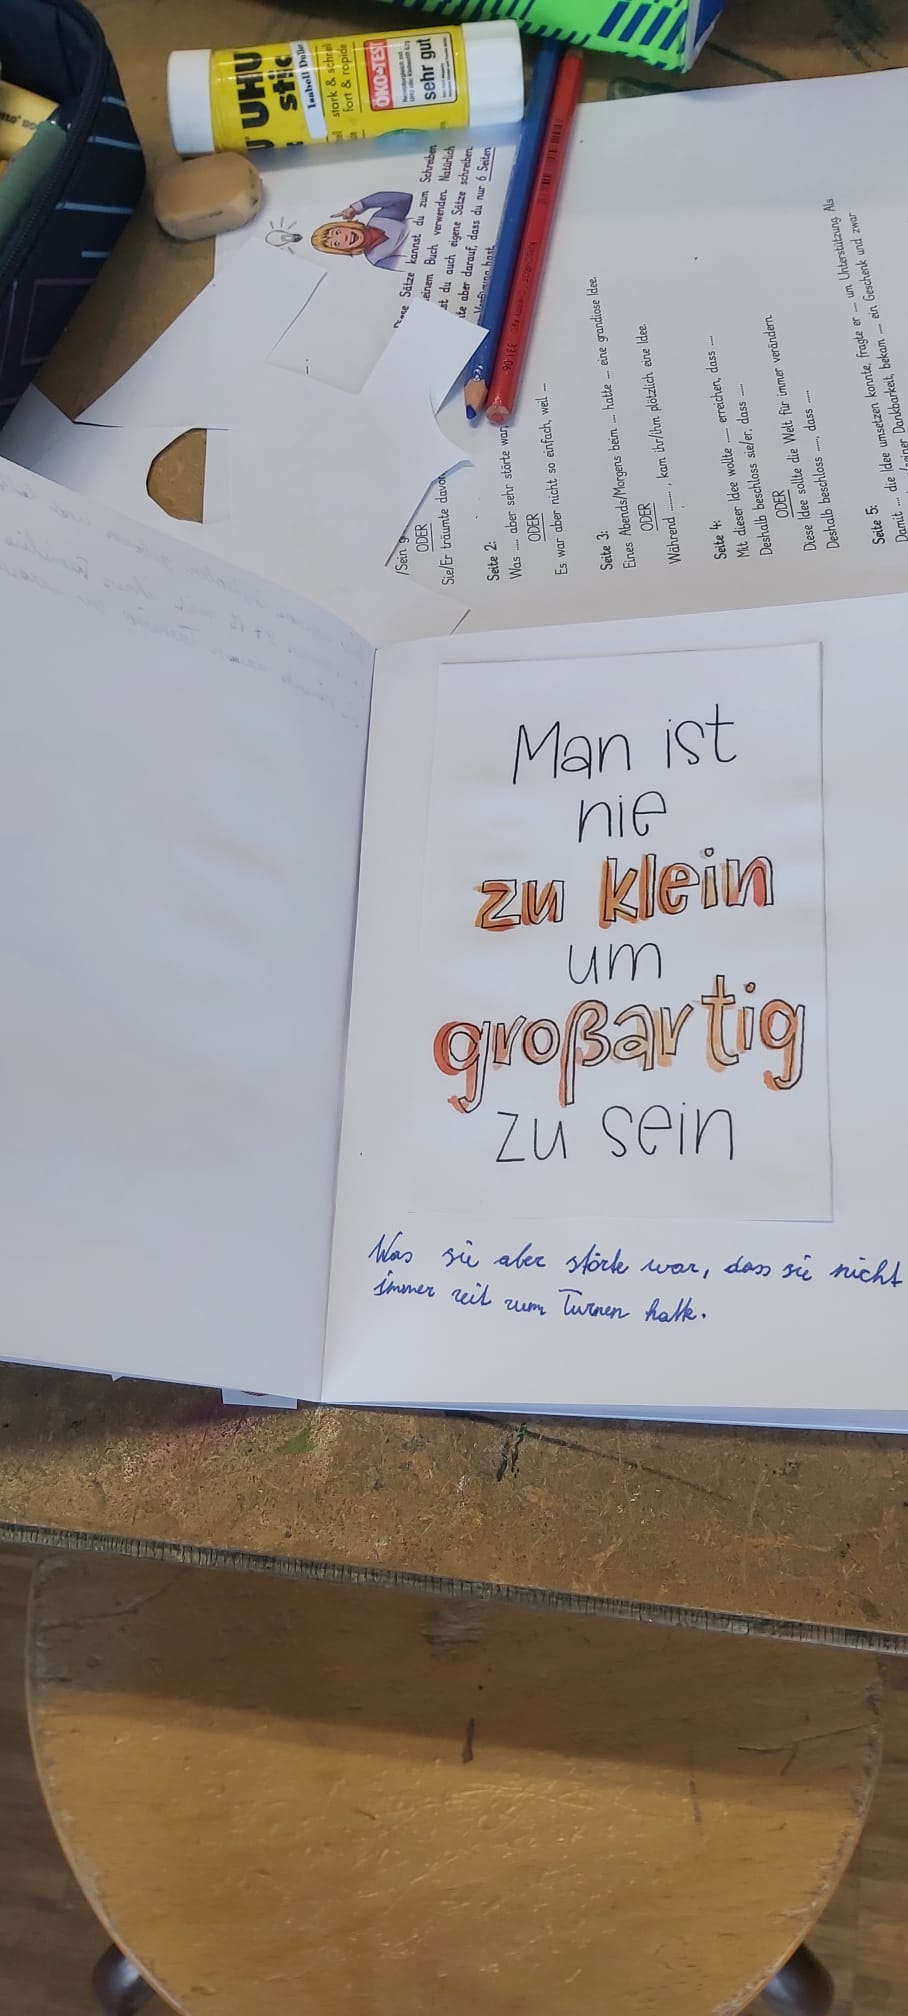 UHU
stic
Isabell
stark & schnell
fort & rapide
ÖKO-TEST
sehr gut
Sätze kannst du zum Schreiben
deinem Buch verwenden. Natürlich
du auch eigene Sätze schreiben.
aber darauf, dass du nur 6 Seiten
hast.
/Sein
ODER
Sie/Er träumte davon
Seite 2:
Was ... aber sehr störte war,
ODER
Es war aber nicht so einfach, weil ...
Seite 3:
Eines Abends/Morgens beim ... hatte ... eine grandiose Idee.
ODER
Während ......., kam ihr/ihm plötzlich eine Idee.
Seite 4:
Mit dieser Idee wollte ..... erreichen, dass ....
Deshalb beschloss sie/er, dass .....
ODER
Diese Idee sollte die Welt für immer verändern.
Deshalb beschloss ....., dass .....
Seite 5:
Damit ... die Idee umsetzen konnte, fragte er ... um Unterstützung. Als
Dankbarkeit, bekam ... ein Geschenk und zwar
Man ist
nie
zu klein
um
großartig
zu sein
Was sie aber störte war, dass sie nicht
immer zeit zum Turnen hatte.